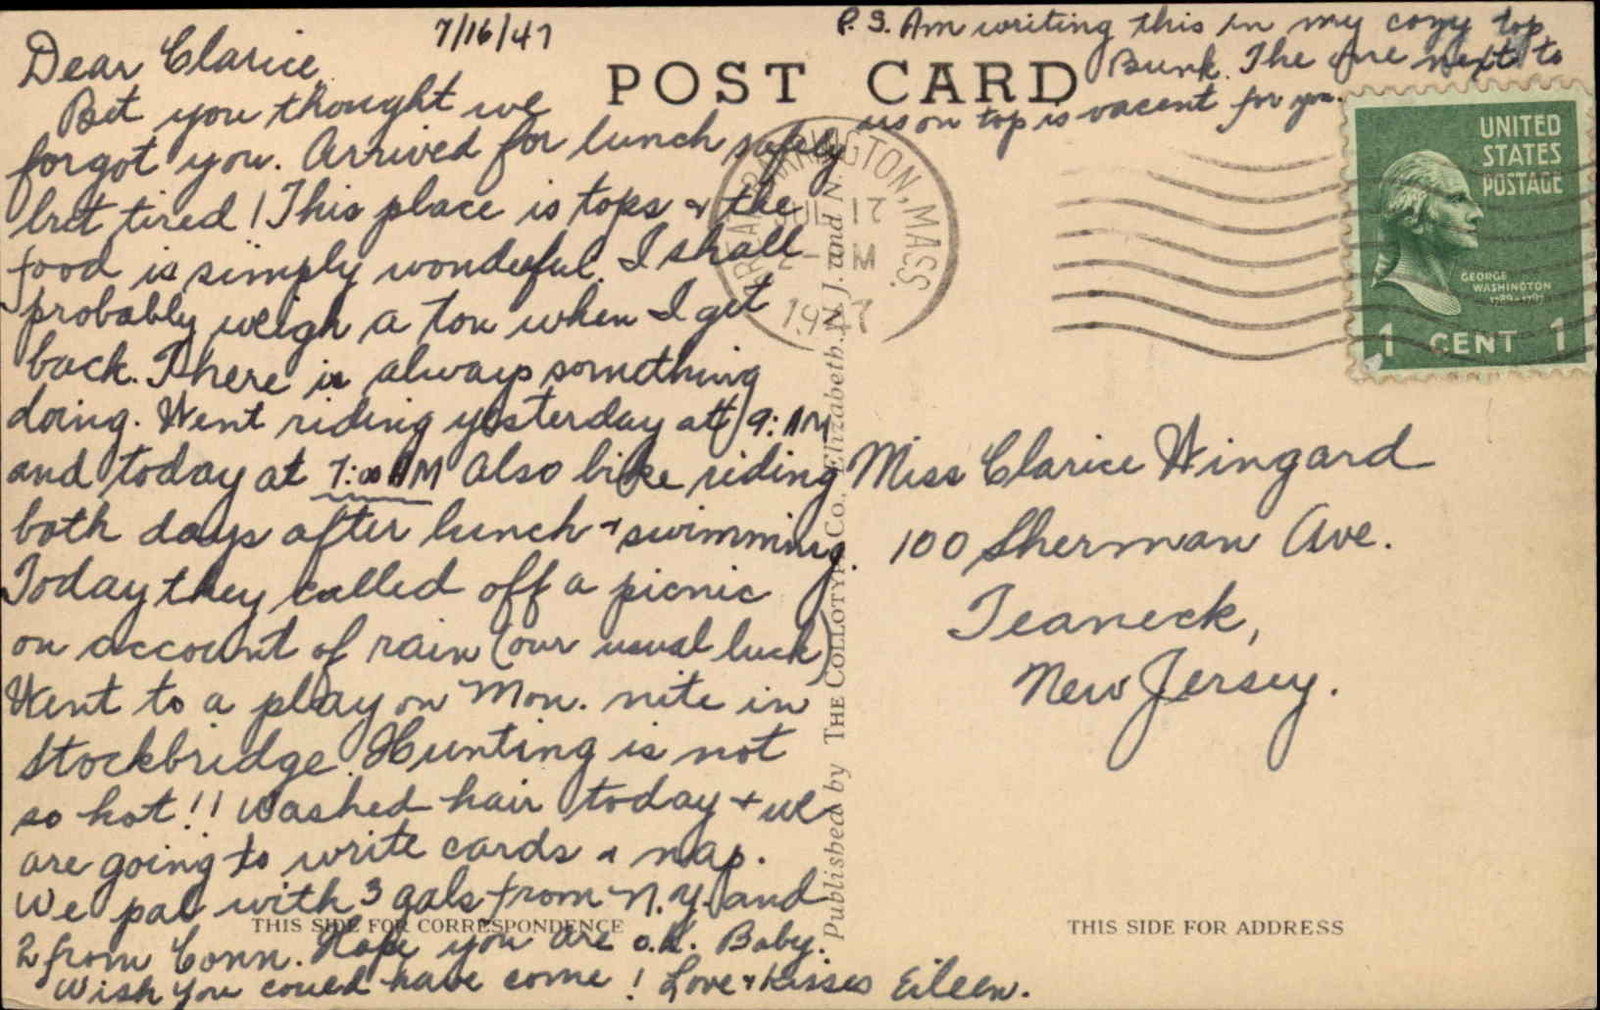 7/16/47
Dear Clarice,
Bet you thought we
forgot you. Arrived for lunch safely
but tired! This place is tops & the
food is simply wonderful. I shall
probably weigh a ton when I get
back. There is always something
doing. Went riding yesterday at 9: AM
and today at 7:00 AM Also bike riding
both days after lunch & swimming.
Today they called off a picnic
on account of rain (our usual luck)
Went to a play on Mon. nite in
Stockbridge. Hunting is not
so hot!! Washed hair today + we
are going to write cards & nap.
We pal with 3 gals from N.Y. and
2 from Conn. Hope you are o.k. Baby.
Wish you could have come! Love & Kisses Eileen.
P.S. Am writing this in my cozy top
Bunk. The one next to
us on top is vacant for you.
POST CARD
BARRINGTON, MASS.
JUL 17
PM
1947
UNITED
STATES
POSTAGE
GEORGE
WASHINGTON
1789-1797
1 CENT 1
Miss Clarice Wingard
100 Sherman Ave.
Teaneck,
New Jersey.
Published by THE COLLOTYPE Co., Elizabeth, N. J. and N.
THIS SIDE FOR CORRESPONDENCE
THIS SIDE FOR ADDRESS